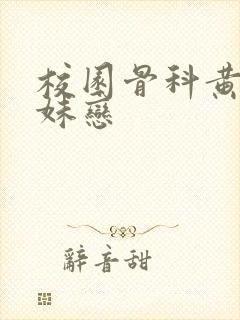 校園骨科黃
妹戀
辭音甜